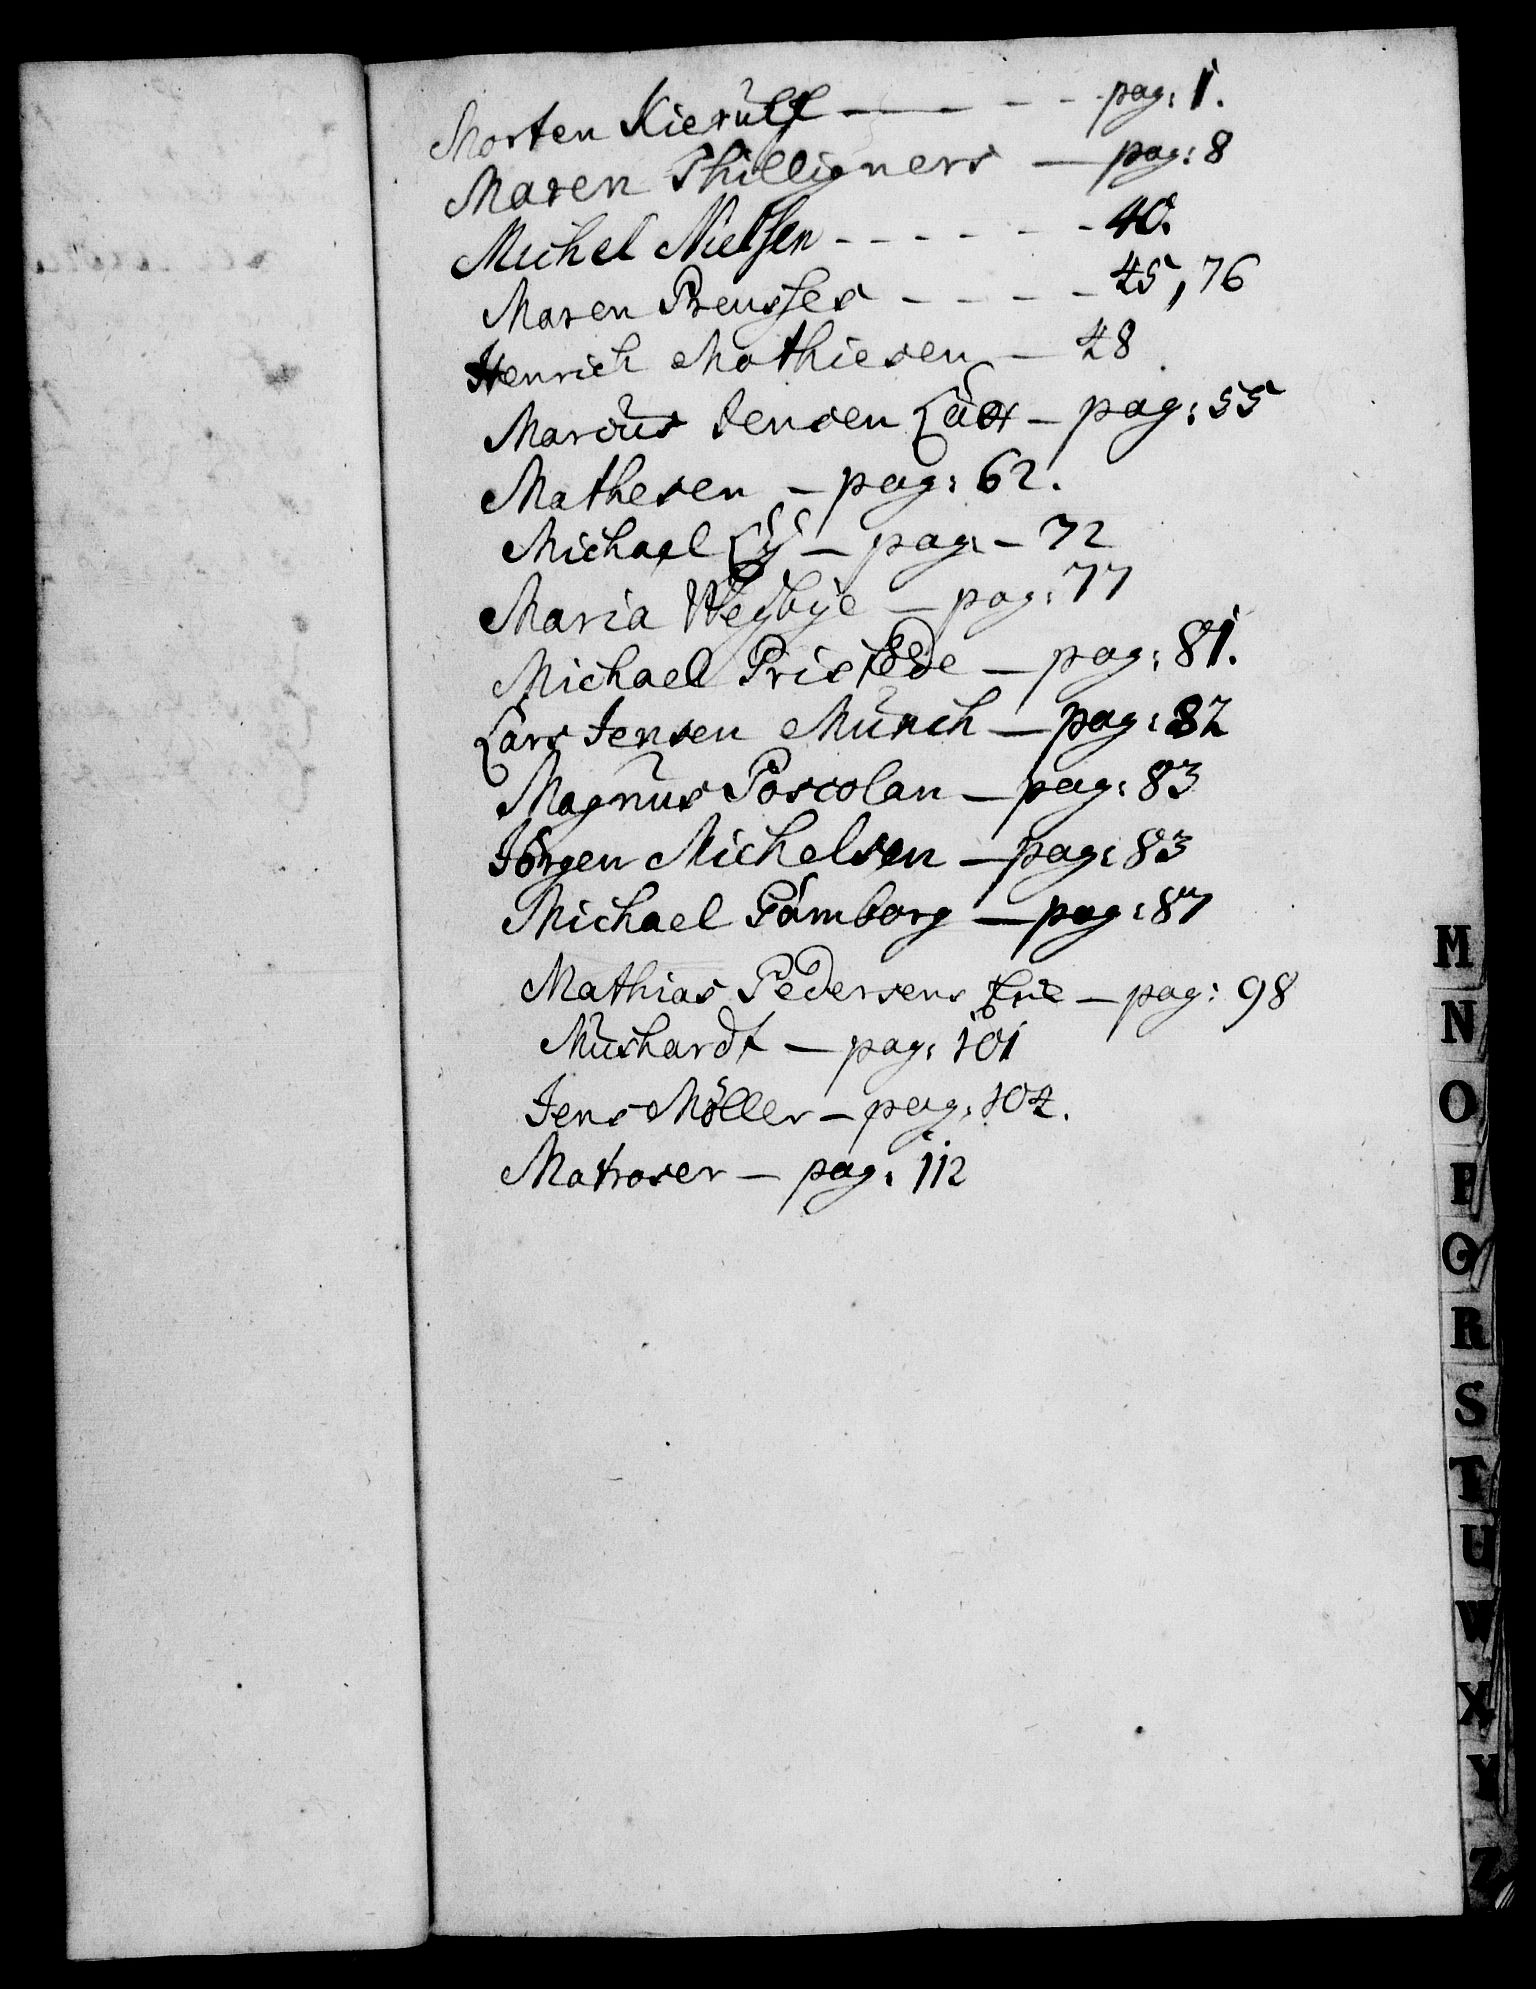 Morten Kierulf — — — — pag: 1.
Maren Phillipners — pag: 8
Michel Nielsen - - - - - - 40.
Maren Preusses - - - - - 45, 76
Henrich Mathiesen — 48
Marcus Jensen — pag: 55
Mathesen — pag: 62.
Michael Ly — pag: — 72
Maria Wegbye — pag: 77
Michael Pristede — pag: 81.
Lars Jensen Münch — pag: 82
Magnus Poscolan — pag: 83
Jörgen Michelsen — pag: 83
Michael Pamborg — pag: 87
Mathias Pedersens — pag: 98
Mushardt — pag: 101
Jens Möller — pag: 104.
Matroser — pag: 112
M
N
O
P
Q
R
S
T
U
W
X
Y
Z